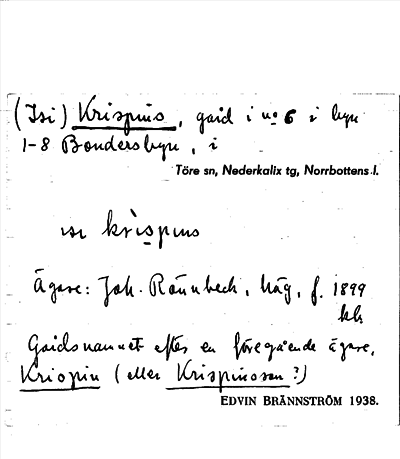 (Isi) Krispins, gård i no 6 i byn
1-8 Bondersbyn, i
Töre sn, Nederkalix tg, Norrbottens l.
krispins
Ägare: Joh. Rönnbeck, häg, f. 1899
Gårdsnamnet efter en föregående ägare,
Krispin (eller Krispinsson?)
EDVIN BRÄNNSTRÖM 1938.